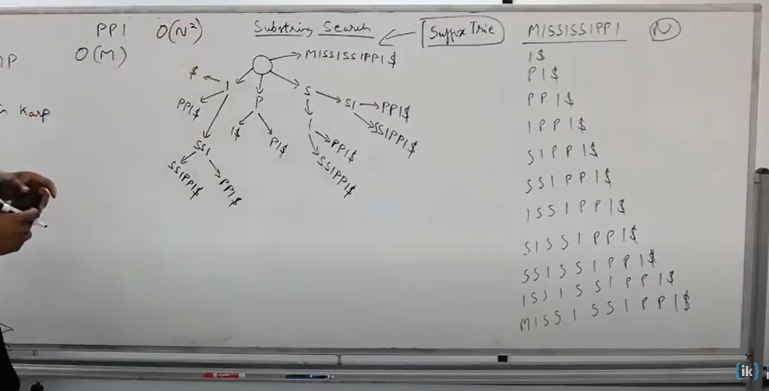 PPI O(N²) Substring Search Suffix Trie MISSISSIPPI N
O(M)
MISSISSIPPI$
$ I P S SI PPI$
PPI$ I$ PI$ I PPI$ SSIPPI$
SSI SSIPPI$
SSIPPI$ PPI$
Karp
I$
PI$
PPI$
IPPI$
SIPPI$
SSIPPI$
ISSIPPI$
SISSIPPI$
SSISSIPPI$
ISSISSIPPI$
MISSISSIPPI$
{ik}